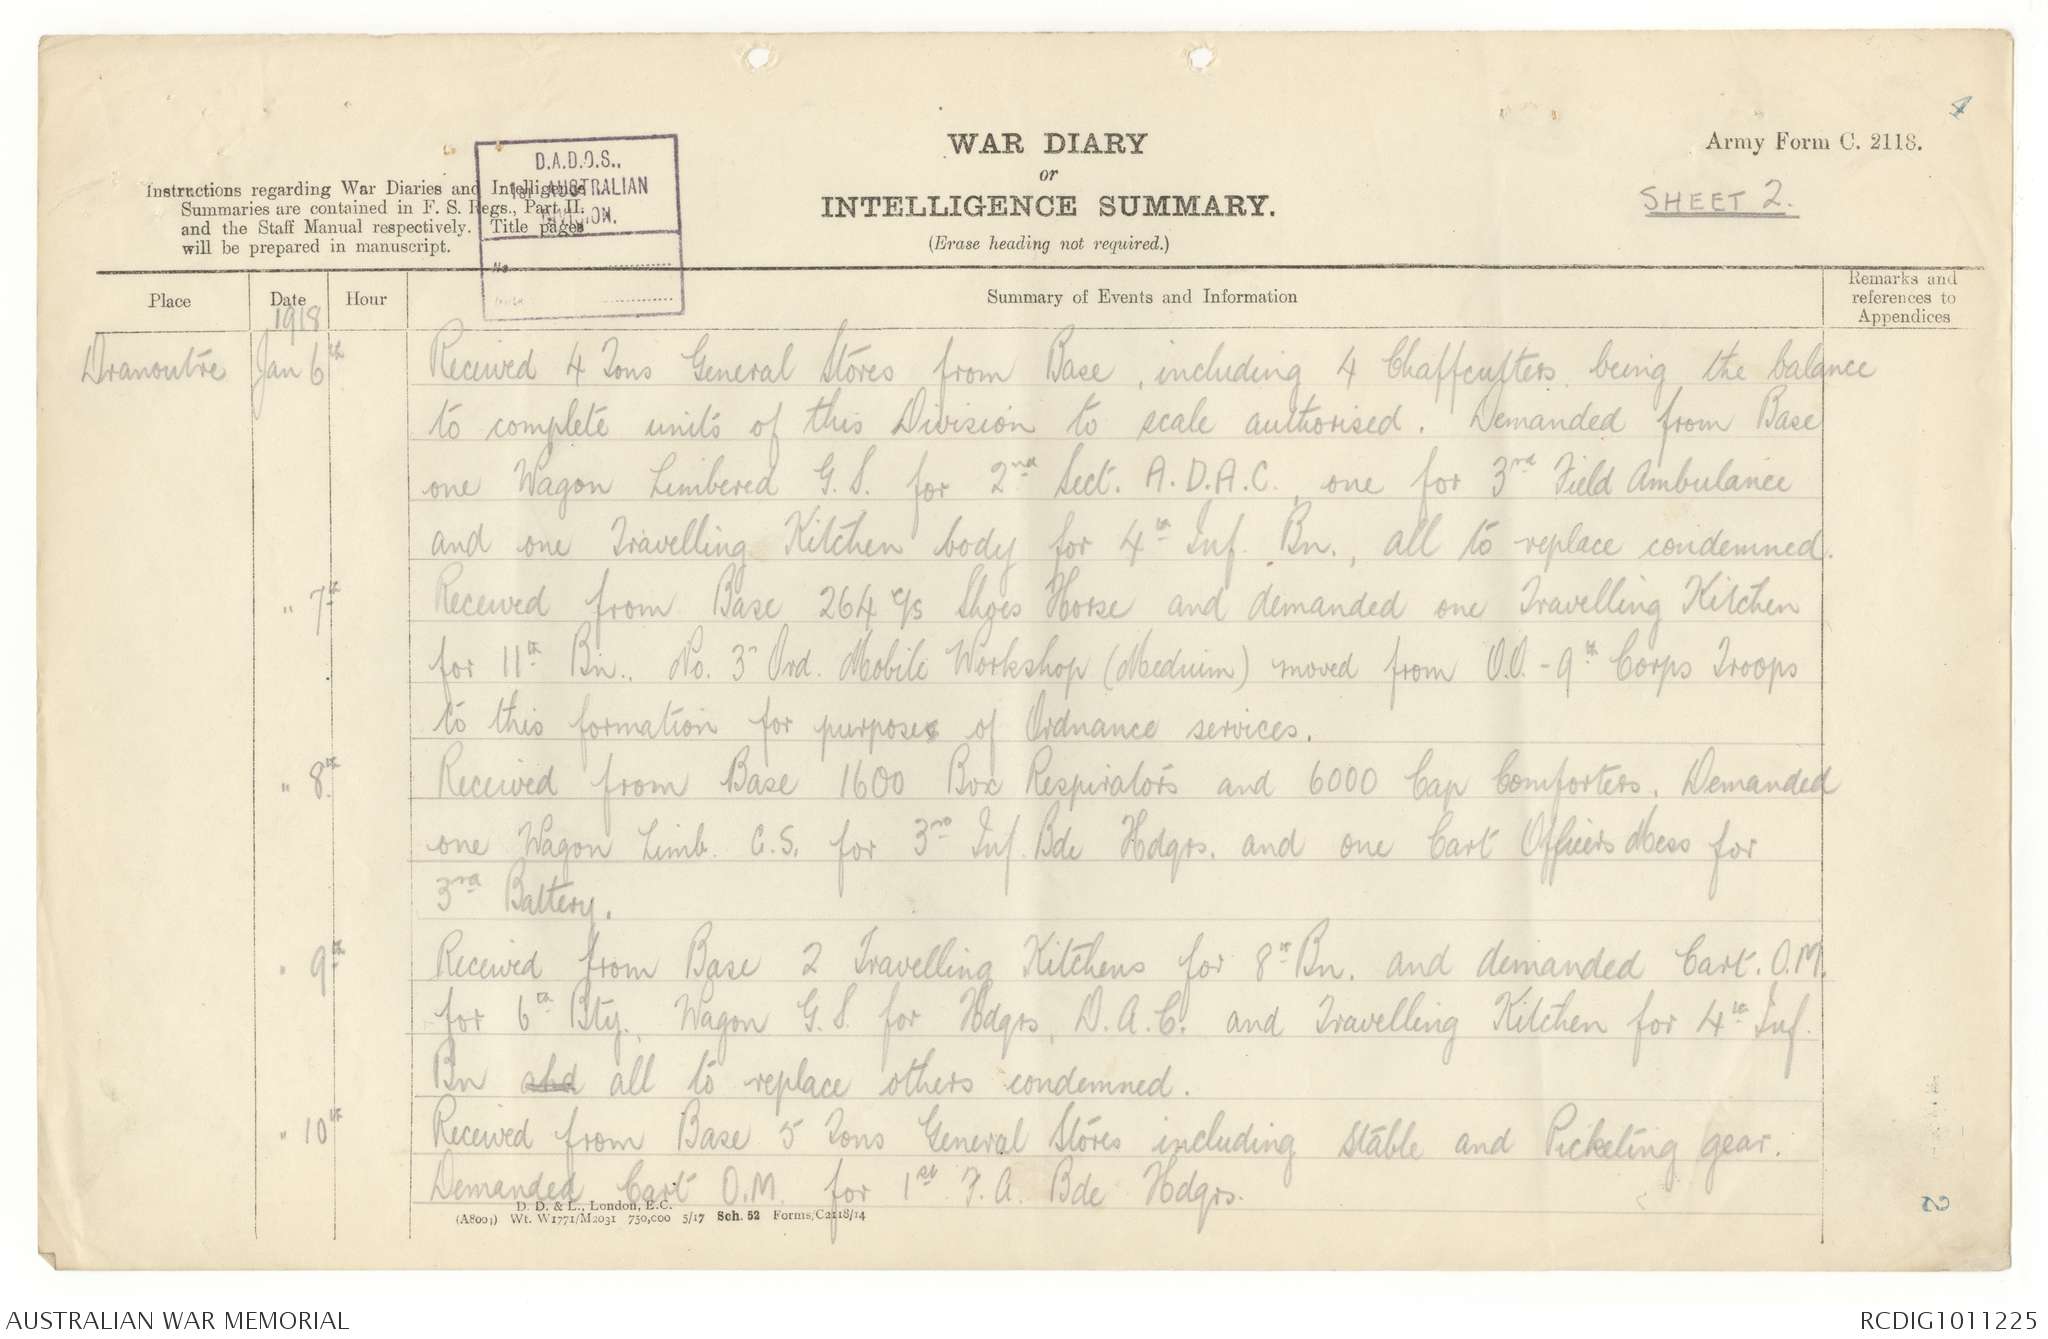 4
WAR DIARY
or
INTELLIGENCE SUMMARY.
(Erase heading not required.)
Army Form C. 2118.
SHEET 2.
Instructions regarding War Diaries and Intelligence
Summaries are contained in F. S. Regs., Part II.
and the Staff Manual respectively. Title pages
will be prepared in manuscript.
D.A.D.O.S.,
1st AUSTRALIAN
DIVISION.
No
Place
Date
1918
Hour
Summary of Events and Information
Remarks and
references to
Appendices
Dranoutre Jan 6th Received 4 Tons General Stores from Base, including 4 Chaffcutters, being the balance
to complete units of this Division to scale authorised. Demanded from Base
one Wagon Limbered G.S. for 2nd Sect. A.D.A.C., one for 3rd Field Ambulance
and one Travelling Kitchen body for 4th Inf. Bn., all to replace condemned.
" 7th Received from Base 264 c/s Shoes Horse and demanded one Travelling Kitchen
for 11th Bn.. No. 3 Ord. Mobile Workshop (Medium) moved from O.O. - 9th Corps Troops
to this formation for purposes of Ordnance services.
" 8th Received from Base 1600 Box Respirators and 6000 Cap Comforters. Demanded
one Wagon Limb. G.S. for 3rd Inf. Bde Hdqrs. and one Cart Officers Mess for
3rd Battery.
" 9th Received from Base 2 Travelling Kitchens for 8th Bn. and demanded Cart. O.M.
for 6th Bty., Wagon G.S. for Hdqrs, D.A.C. and Travelling Kitchen for 4th Inf.
Bn and all to replace others condemned.
" 10th Received from Base 5 Tons General Stores including Stable and Picketing gear.
Demanded Cart O.M. for 1st F.A. Bde Hdqrs.
D. D. & L., London, E.C.
(A8001) Wt. W1771/M2031 750,000 5/17 Sch. 52 Forms/C2118/14
2
AUSTRALIAN WAR MEMORIAL
RCDIG1011225